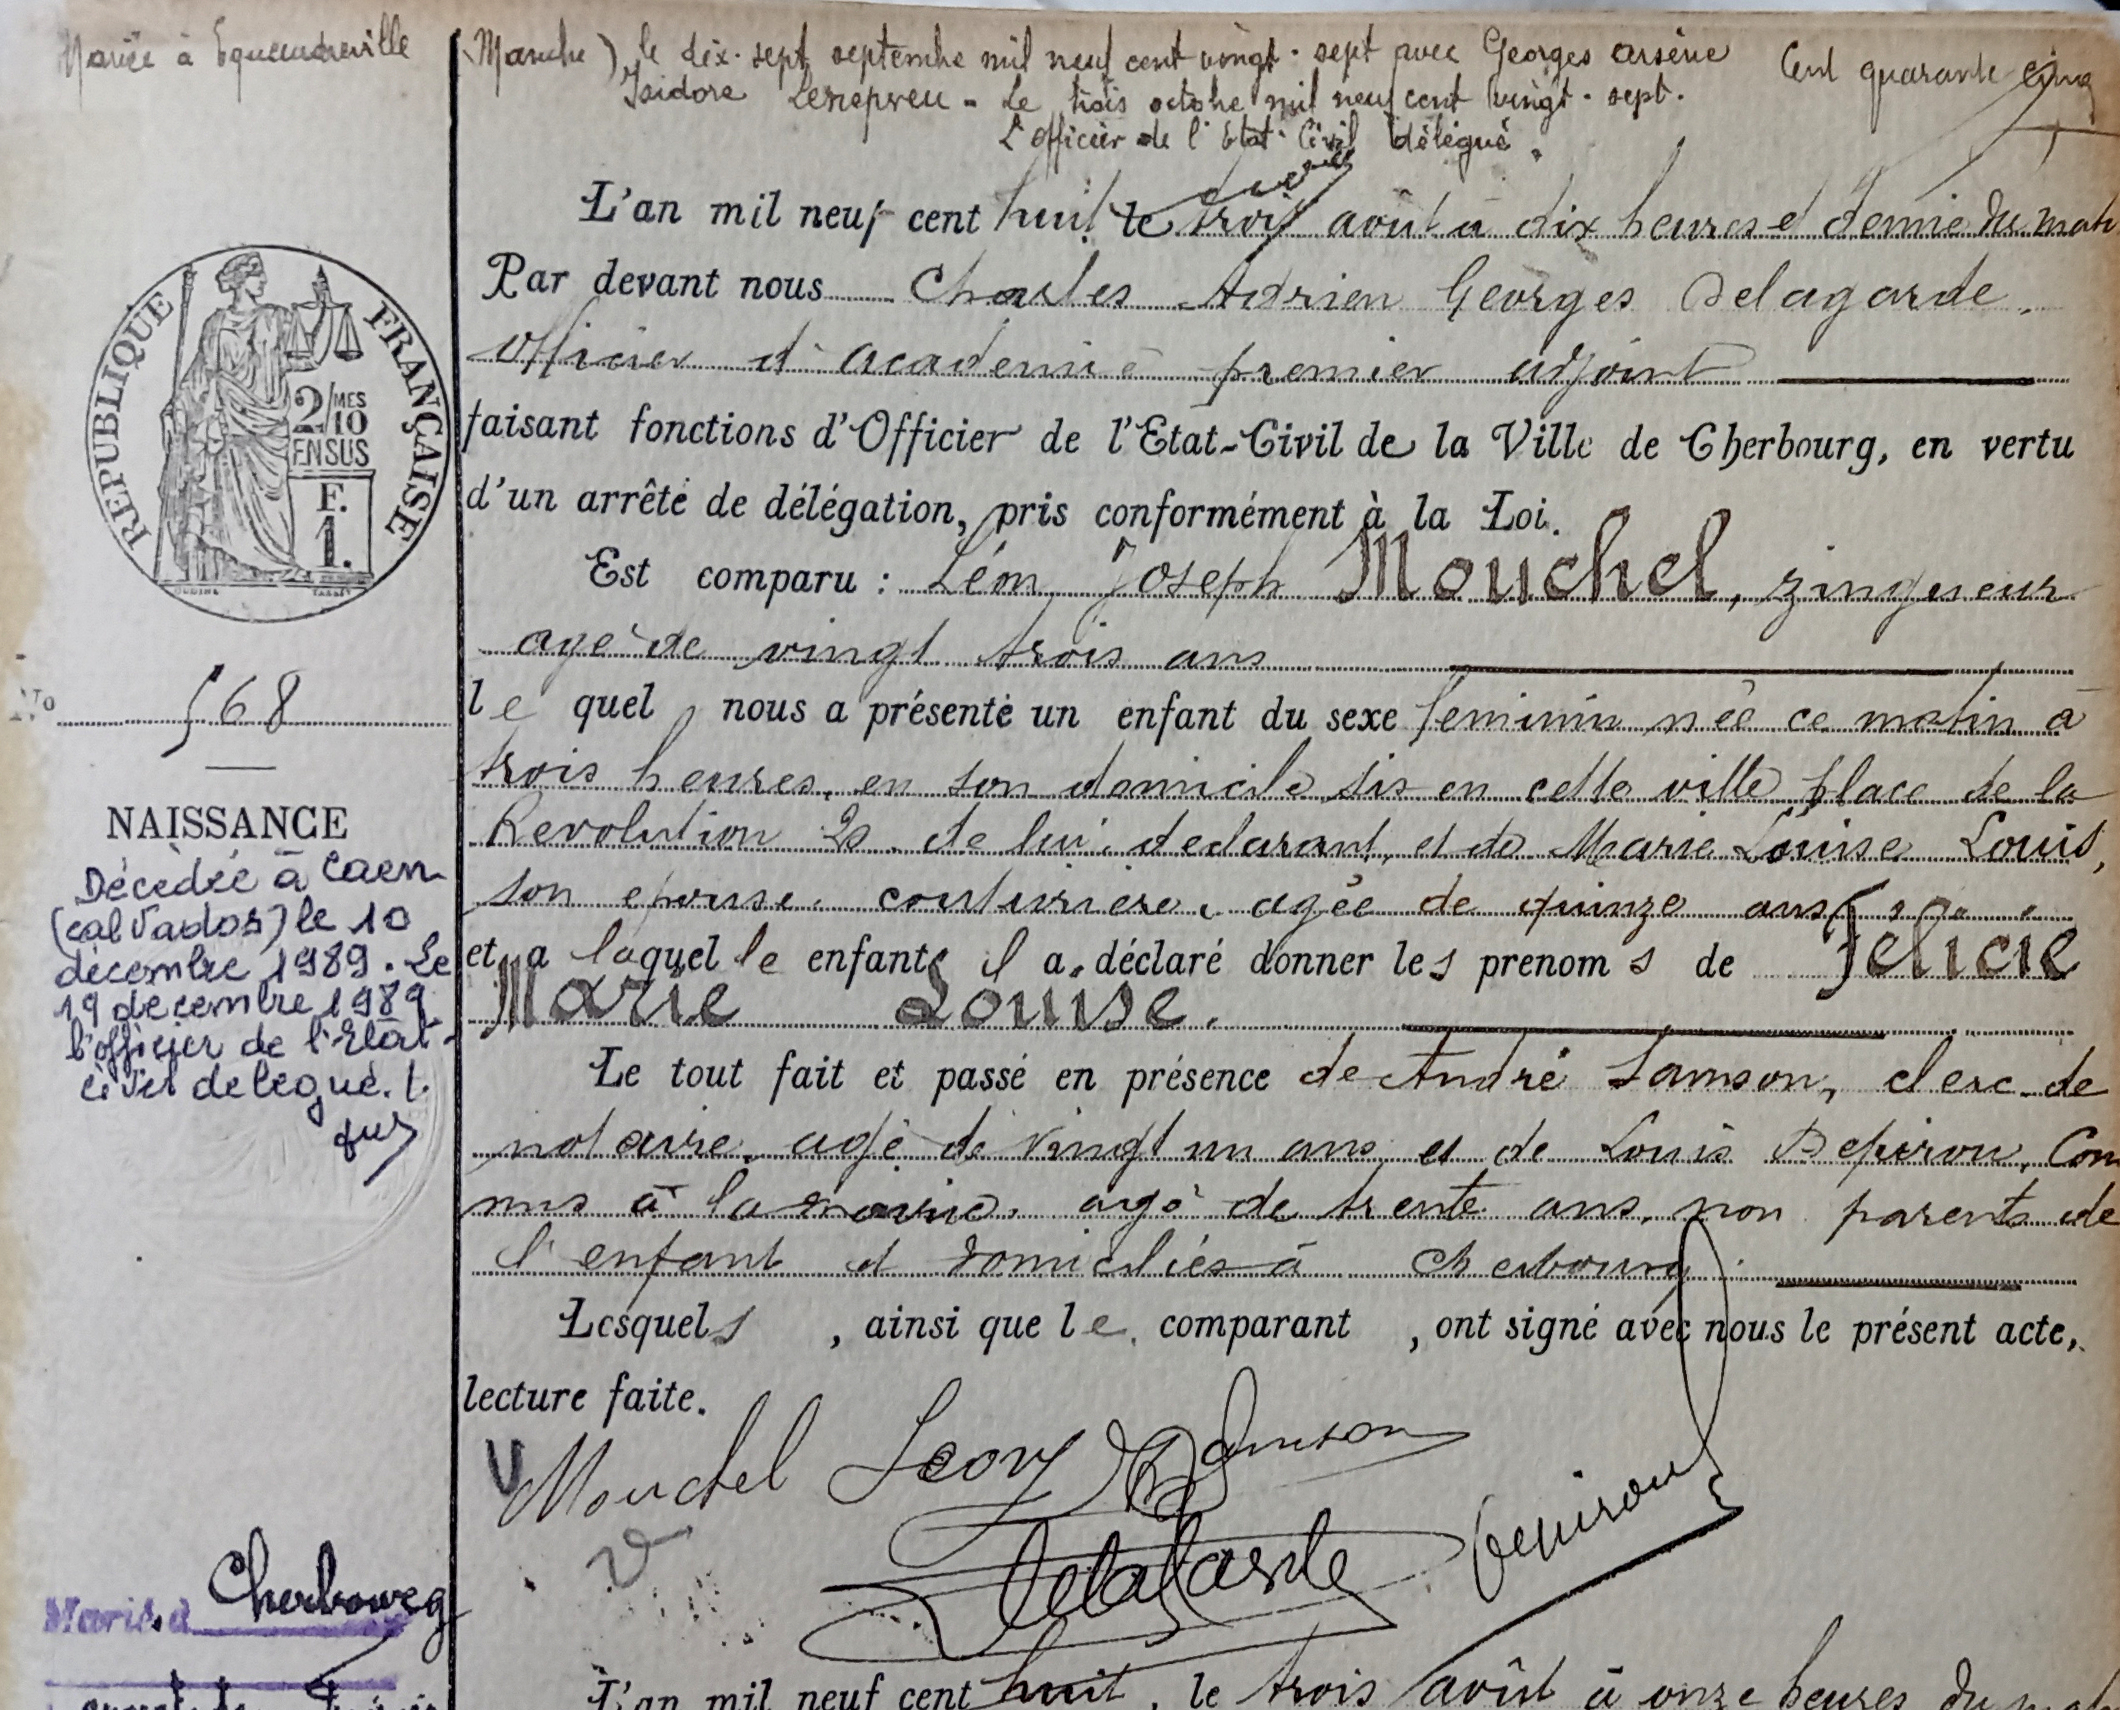 Mariée à Equeurdreville (Manche) le dix-sept septembre mil neuf cent vingt-sept avec Georges Arsène
Isidore Lenepveu - Le trois octobre mil neuf cent vingt-sept.
L'officier de l'Etat-Civil délégué.
Cent quarante cinq
L'an mil neuf cent huit le trois août à dix heures et demie du matin
Par devant nous Charles Adrien Georges Delagarde,
officier d'académie premier adjoint
faisant fonctions d'Officier de l'Etat-Civil de la Ville de Cherbourg, en vertu
d'un arrêté de délégation, pris conformément à la Loi.
Est comparu : Léon Joseph Mouchel, zingueur
agé de vingt trois ans
le quel nous a présenté un enfant du sexe feminin née ce matin à
trois heures, en son domicile sis en cette ville place de la
Revolution 23 de lui declarant, et de Marie Louise Louis,
son epouse, couturière, agée de quinze ans
et a laquel le enfant il a déclaré donner les prenom s de Félicie
Marie Louise.
Le tout fait et passé en présence de André Samson, clerc de
notaire, agé de vingt un ans et de Louis Depirou, Com
mis à la marine, agé de trente ans, non parents de
l'enfant et domiciliés à Cherbourg.
Lesquels , ainsi que le comparant , ont signé avec nous le présent acte,
lecture faite.
Mouchel Leon Samson
Delagarde Depirou
REPUBLIQUE FRANÇAISE
2/10 MES
EN SUS
F.
1.
OUDINE TASSET
No 568
NAISSANCE
Décédée à Caen
(calvados) le 10
décembre 1989. Le
19 decembre 1989
l'officier de l'Etat-
civil delegué.
Marié à Cherbourg
L'an mil neuf cent huit, le trois août à onze heures du